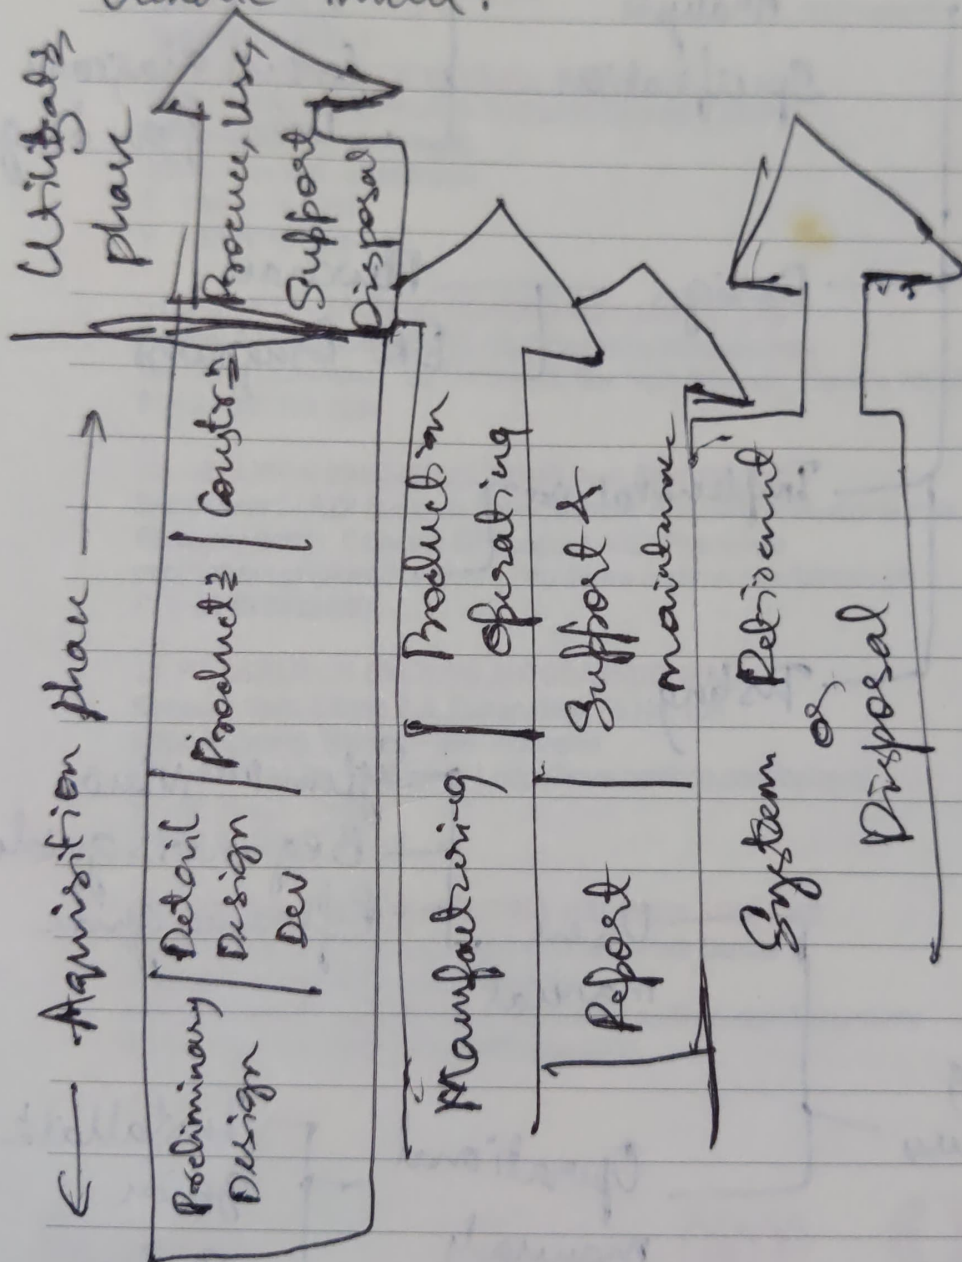 ← Aqusition phase →
Utilizatn
phase
Preliminary
Design
Detail
Design
Dev
Productn
Constrn
Procure, Use,
Support
Disposal
Manfactring
Production
operating
Report
Support &
maintanance
System Retirement
or
Disposal